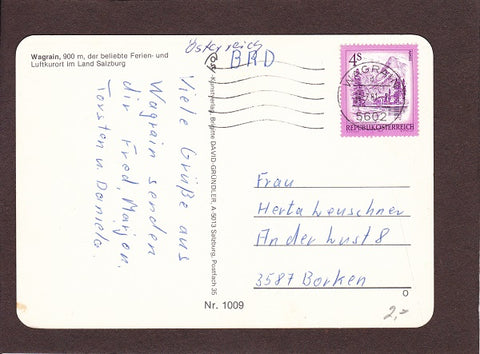 Wagrain, 900 m, der beliebte Ferien- und
Luftkurort im Land Salzburg
Österreich
BRD
Viele Grüße aus
Wagrain senden
dir Fred, Marion.
Torsten u. Daniela.
Kunstverlag Brigitte DAVID-GRÜNDLER, A-5013 Salzburg, Postfach 35
4 S
WAGRAIN
5602
REPUBLIK ÖSTERREICH
Frau
Herta Leuschner
An der Lust 8
3587 Borken
Nr. 1009
2,-